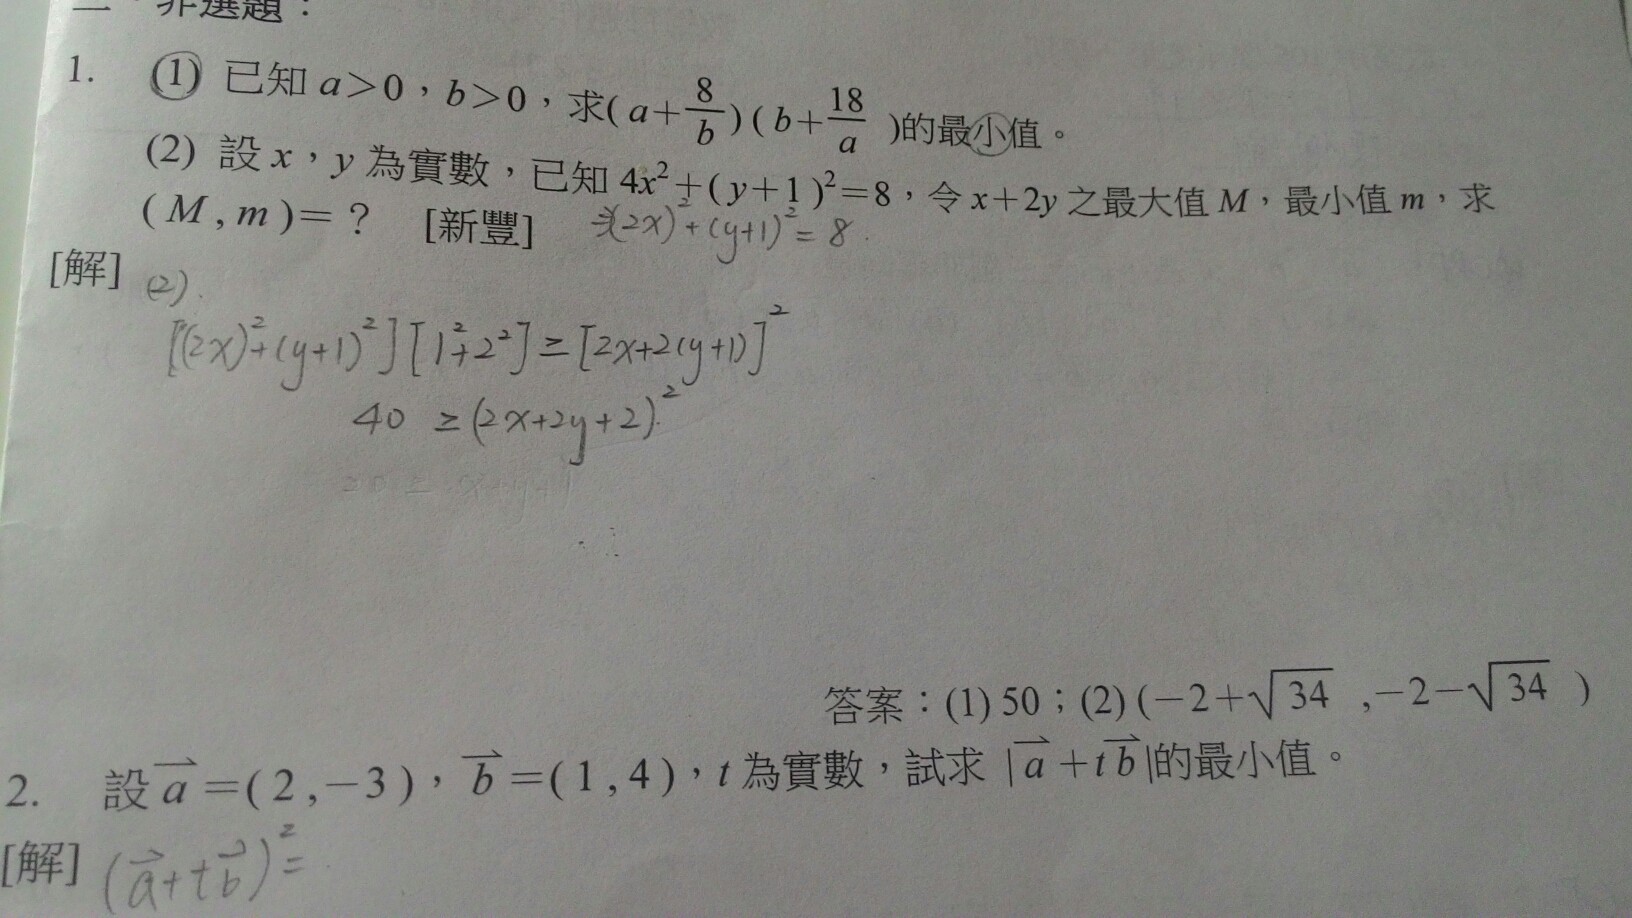 二、非選題：
1. (1) 已知 a>0，b>0，求( a+8/b )( b+18/a )的最小值。
(2) 設 x，y 為實數，已知 4x²+( y+1 )²=8，令 x+2y 之最大值 M，最小值 m，求
( M , m )=？ [新豐] (2x)²+(y+1)²=8
[解] (2).
[(2x)²+(y+1)²][1²+2²]≥[2x+2(y+1)]²
40 ≥(2x+2y+2)²
答案：(1) 50；(2) (−2+√34 ,−2−√34 )
2. 設 a⃗ =( 2 ,−3 )，b⃗ =( 1 , 4 )，t 為實數，試求 |a⃗ +t b⃗ |的最小值。
[解] (a⃗+tb⃗)²=